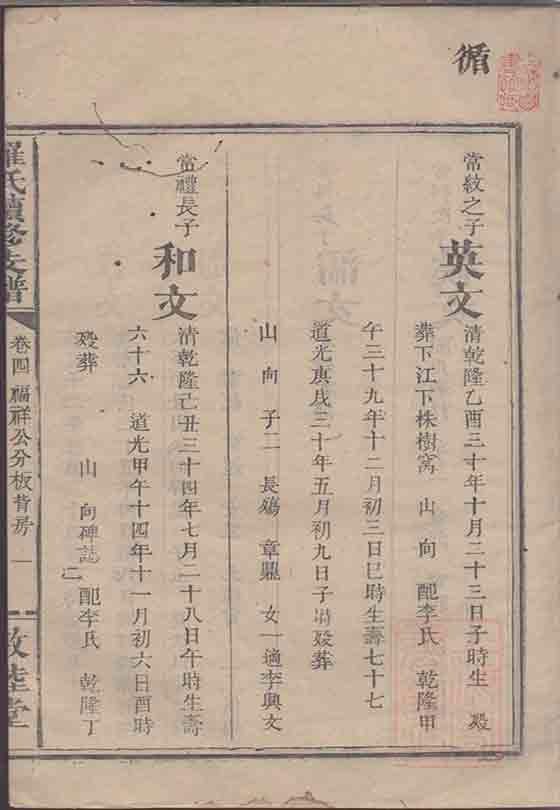 循
常紋之子
英文
清乾隆乙酉三十年十月二十三日子時生 歿
葬下江下株樹窩 山 向 配李氏 乾隆甲
午三十九年十二月初三日巳時生壽七十七
道光庚戌三十年五月初九日子時歿葬
山 向 子二 長殤 章鼎 女一適李興文
常禮長子
和文
清乾隆己丑三十四年七月二十八日午時生壽
六十六 道光甲午十四年十一月初六日酉時
歿葬 山 向碑誌 配李氏 乾隆丁
羅氏續修支譜
卷四 福祥公分板背房
一
敦睦堂